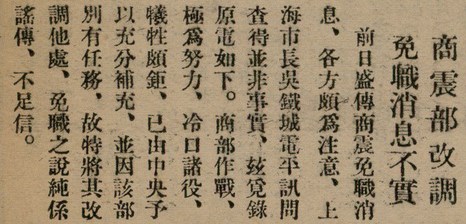 商震部改調
免職消息不實
前日盛傳商震免職消
息、各方頗爲注意、上
海市長吳鐵城電平訊問
查得並非事實、玆覓錄
原電如下。商部作戰、
極爲努力、冷口諸役、
犠牲頗鉅、已由中央予
以充分補充、並因該部
別有任務、故特將其改
調他處、免職之說純係
謠傳、不足信。